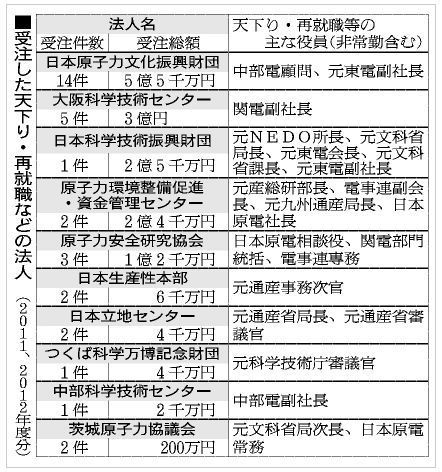 ■受注した天下り・再就職などの法人（2011、2012年度分）
法人名
受注件数 受注総額
天下り・再就職等の
主な役員（非常勤含む）
日本原子力文化振興財団
14件 5億5千万円
中部電顧問、元東電副社長
大阪科学技術センター
5件 3億円
関電副社長
日本科学技術振興財団
1件 2億5千万円
元ＮＥＤＯ所長、元文科省
局長、元東電会長、元文科
省課長、元東電副社長
原子力環境整備促進
・資金管理センター
2件 2億4千万円
元産総研部長、電事連副会
長、元九州通産局長、日本
原電社長
原子力安全研究協会
3件 1億2千万円
日本原電相談役、関電部門
統括、電事連専務
日本生産性本部
2件 6千万円
元通産事務次官
日本立地センター
2件 4千万円
元通産省局長、元通産省審
議官
つくば科学万博記念財団
1件 4千万円
元科学技術庁審議官
中部科学技術センター
1件 2千万円
中部電副社長
茨城原子力協議会
2件 200万円
元文科省局次長、日本原電
常務